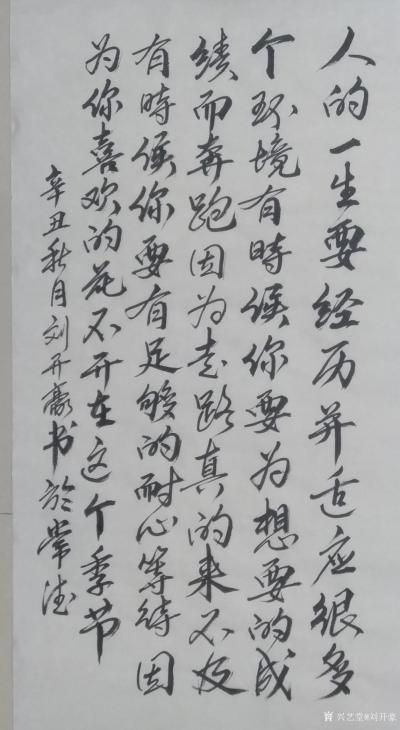 人的一生要经历并适应很多
个环境有時候你要为想要的成
绩而奔跑因为走路真的来不及
有時候你要有足够的耐心等待因
为你喜欢的花不开在这个季节
辛丑秋月刘开豪书於常德
兴艺堂@刘开豪